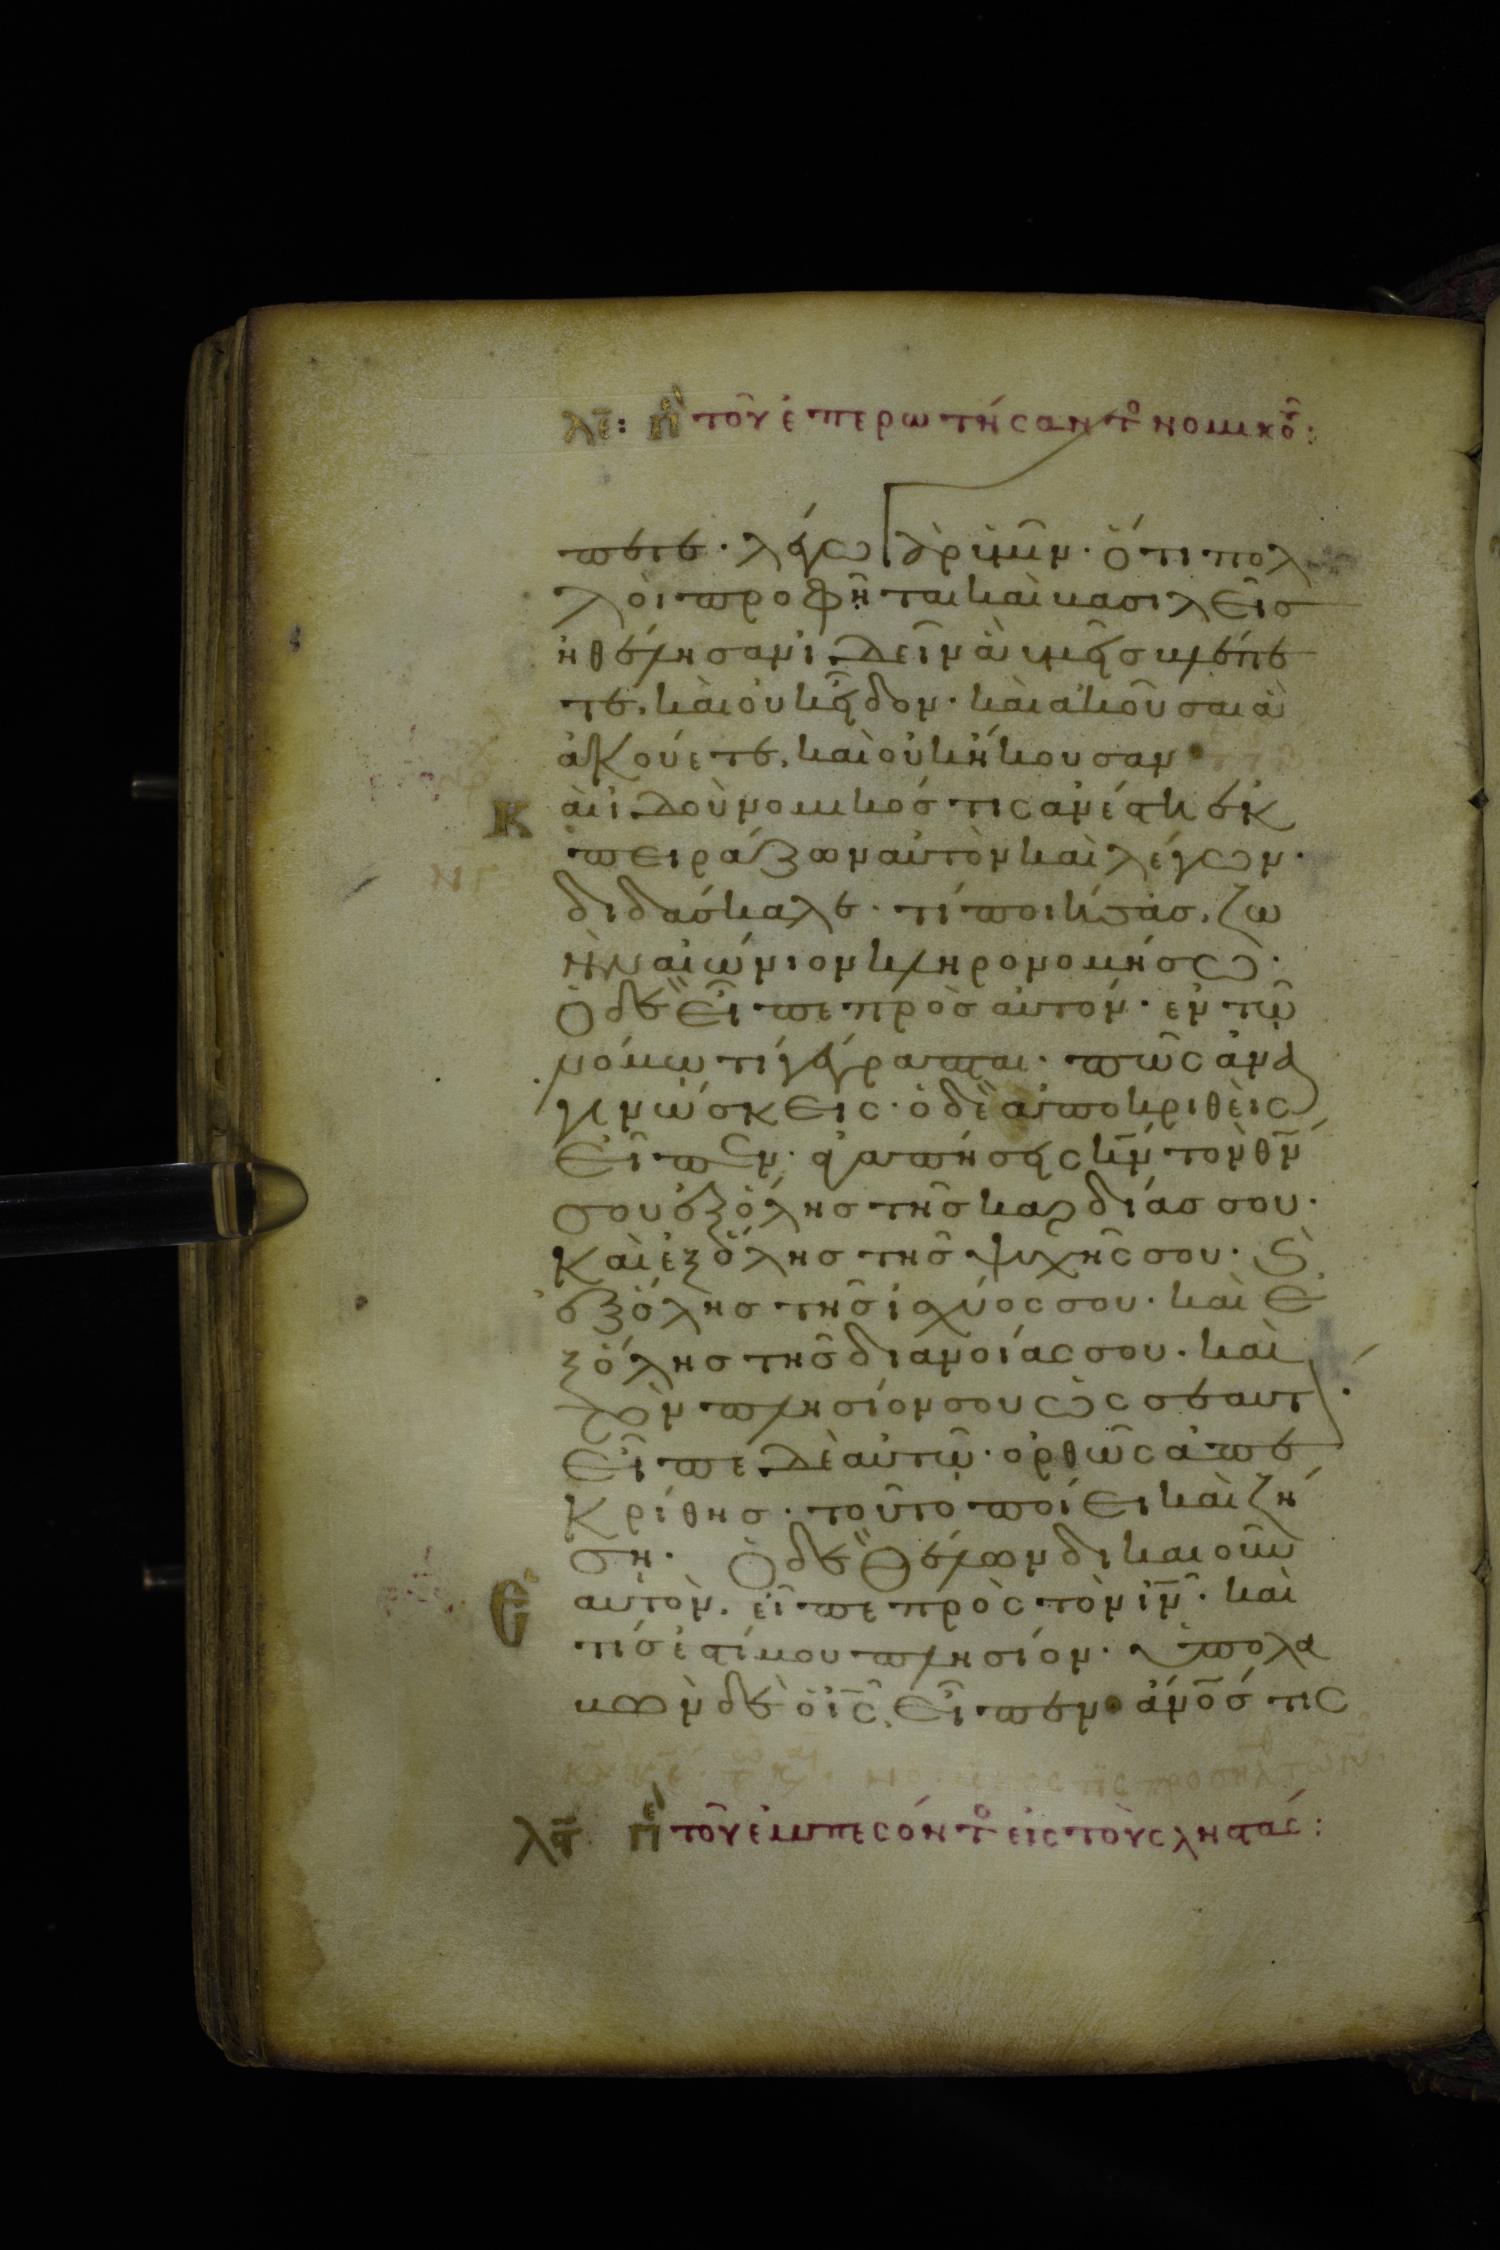 λε: π̅ε τοῦ ἐπερωτήσαντο νομικοῦ:
πετε· λέγω γὰρ ὑμῖν· ὅτι πολ
λοὶ προφῆται καὶ βασιλεῖσ
ἠθέλησαν ἰδεῖν ἃ ὑμεῖσ βλέπε
τε, καὶ οὐκ εἶδον· καὶ ἀκοῦσαι ἃ
ἀκούετε, καὶ οὐκ ἤκουσαν
Κ αὶ ἰδοὺ νομικόσ τις ἀνέστη ἐκ
πειράζων αὐτὸν καὶ λέγων·
διδάσκαλε· τί ποιήσασ, ζω
ὴν αἰώνιον κληρονομήσω·
Ὁ δὲ εἶπε πρὸσ αὐτόν· ἐν τῷ
νόμῳ τί γέγραπται· πῶς ἀνα
γινώσκεις· ὁ δὲ ἀποκριθεὶς
εἶπεν· ἀγαπήσεις κ̅ν̅ τὸν θ̅ν̅
σου ἐξ ὅλησ τῆσ καρδίασ σου·
καὶ ἐξ ὅλησ τῆσ ψυχῆς σου· ϗ
ἐξ ὅλησ τῆσ ἰσχύος σου· καὶ ἐ
ξ ὅλησ τῆσ διανοίας σου· καὶ
τὸν πλησίον σου ὡς σεαυτ
εἶπε δὲ αὐτῷ· ὀρθῶς ἀπε
κρίθησ· τοῦτο ποίει καὶ ζή
ση· Ὁ δὲ θέλων δικαιοῦν
ἑ αυτὸν, εἶπε πρὸς τὸν ι̅ν̅· καὶ
τίσ ἐστί μου πλησίον· ὑπολα
βὼν δὲ ὁ ι̅ς̅, εἶπεν· ἄν̅ο̅σ τις
λϛ π̅ε τοῦ ἐμπεσόντο εἰς τοὺς ληστάς: